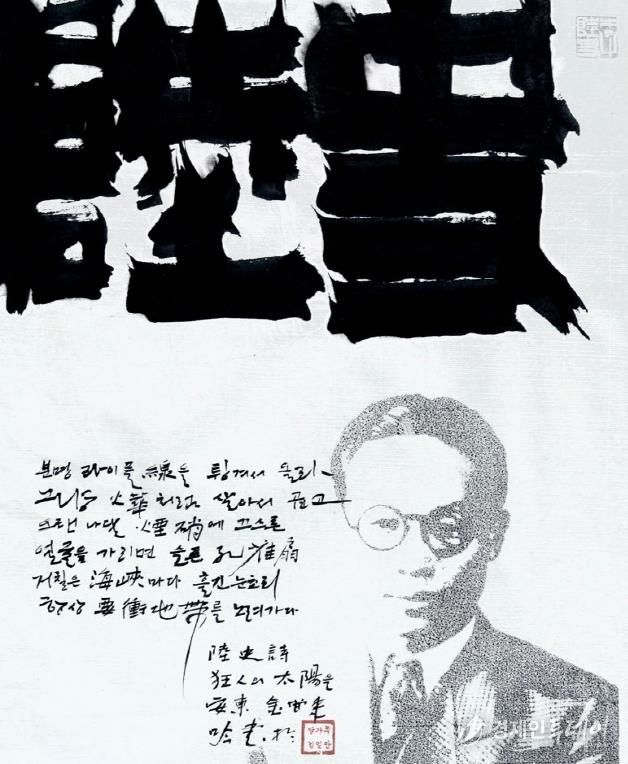 분명 라이플線을 튕겨서 올라
그냥 火華처럼 살아서 곱고
오랜 나달 煙硝에 끄스른
얼굴을 가리면 슬픈 孔雀扇
거칠은 海峽마다 흘긴 눈초리
항상 要衝地帶를 노려가다
陸史詩
狂人의 太陽을
安東 金
경제인투데이